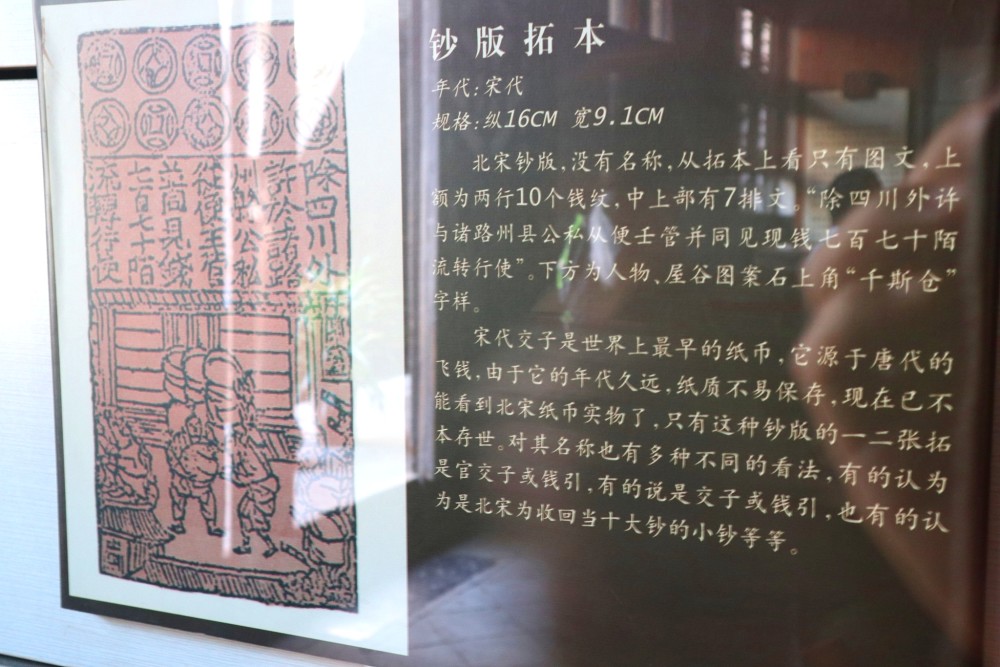 钞版拓本
年代:宋代
规格:纵16CM 宽9.1CM
北宋钞版,没有名称,从拓本上看只有图文,上
额为两行10个钱纹,中上部有7排文。“除四川外许
与诸路州县公私从便壬管并同见现钱七百七十陌
流转行使”。下方为人物、屋谷图案石上角“千斯仓”
字样。
宋代交子是世界上最早的纸币,它源于唐代的
飞钱,由于它的年代久远,纸质不易保存,现在已不
能看到北宋纸币实物了,只有这种钞版的一二张拓
本存世。对其名称也有多种不同的看法,有的认为
是官交子或钱引,有的说是交子或钱引,也有的认
为是北宋为收回当十大钞的小钞等等。
除四川外
許於諸路
州縣公私
從便主管
並同見錢
七百七十陌
流轉行使